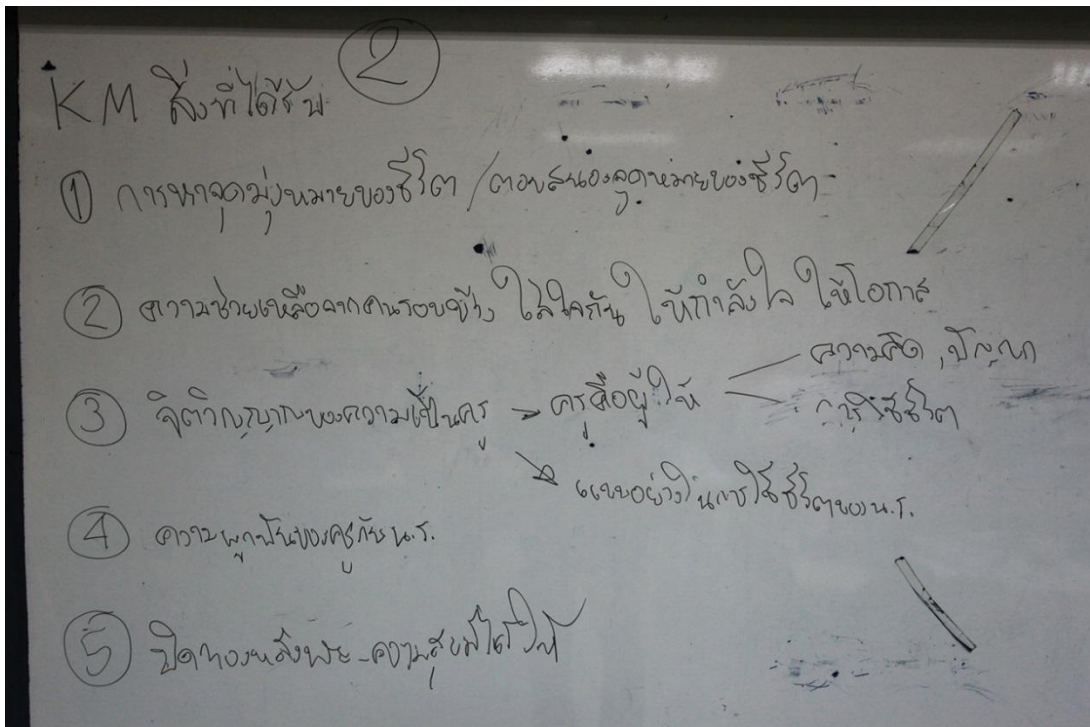 ②
KM สิ่งที่ได้รับ
① การหาจุดมุ่งหมายของชีวิต / ตอบสนองจุดหมายของชีวิต
② ความช่วยเหลือจากคนรอบข้าง ใส่ใจกัน ให้กำลังใจ ให้โอกาส
③ จิตวิญญาณของความเป็นครู → ครูคือผู้ให้
ความคิด , ปัญญา
การใช้ชีวิต
แบบอย่างในการใช้ชีวิตของ น.ร.
④ ความผูกพันของครูกับ น.ร.
⑤ ปิดทองหลังพระ - ความสุขที่ได้ให้